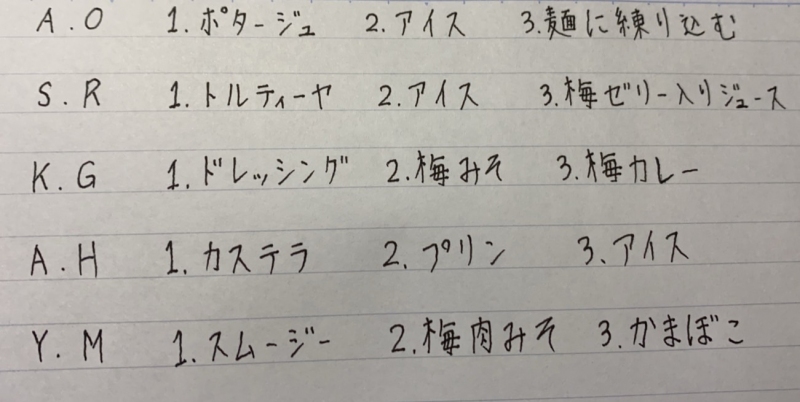 A.O 1.ポタージュ 2.アイス 3.麺に練り込む
S.R 1.トルティーヤ 2.アイス 3.梅ゼリー入りジュース
K.G 1.ドレッシング 2.梅みそ 3.梅カレー
A.H 1.カステラ 2.プリン 3.アイス
Y.M 1.スムージー 2.梅肉みそ 3.かまぼこ